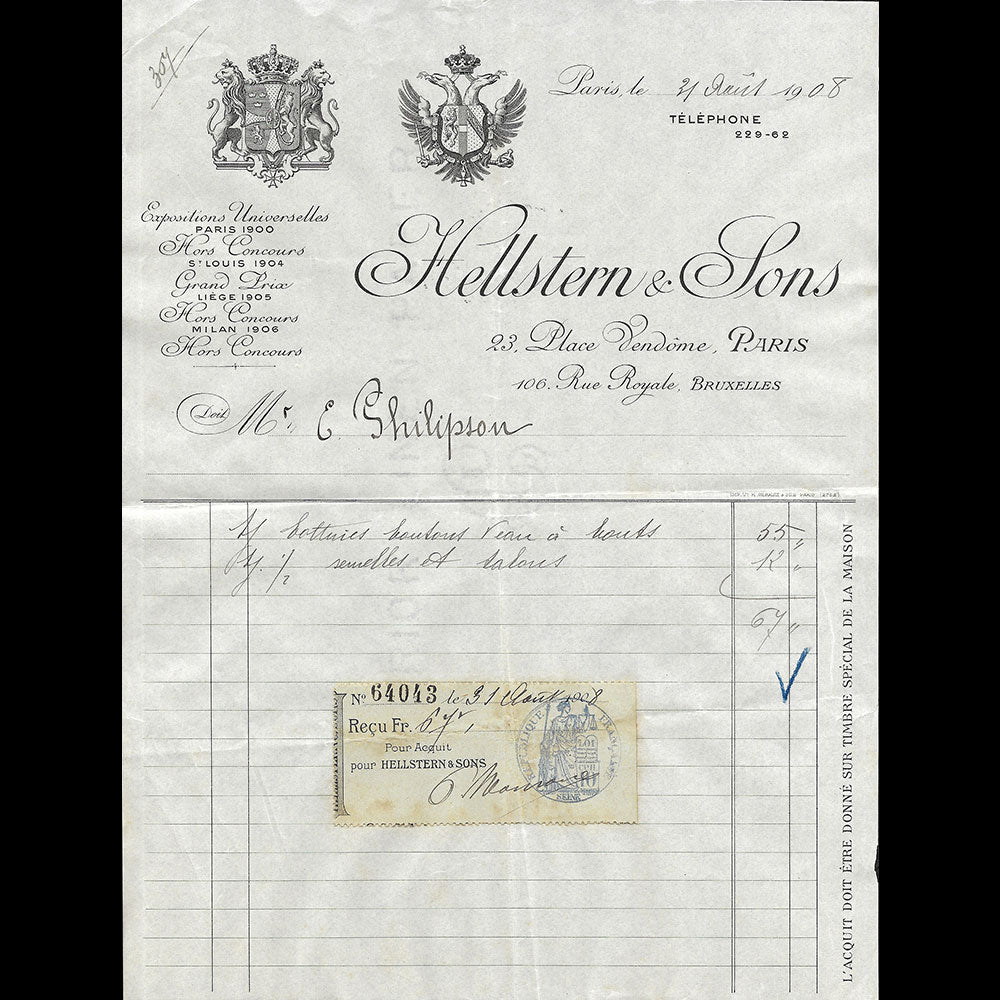 307
Paris, le 31 Août 1908
TÉLÉPHONE
229-62
Expositions Universelles
PARIS 1900
Hors Concours
ST LOUIS 1904
Grand Prix
LIÈGE 1905
Hors Concours
MILAN 1906
Hors Concours
Hellstern & Sons
23, Place Vendôme, PARIS
106, Rue Royale, BRUXELLES
Doit Mr. E. Philipson
bottines boutons Veau à bouts 55 "
1/2 semelles et talons 12 "
67 "
No 64043 le 31 Août 1908
Reçu Fr. 67
Pour Acquit
pour HELLSTERN & SONS
RÉPUBLIQUE FRANÇAISE
LOI
10
SEINE
L'ACQUIT DOIT ÊTRE DONNÉ SUR TIMBRE SPÉCIAL DE LA MAISON